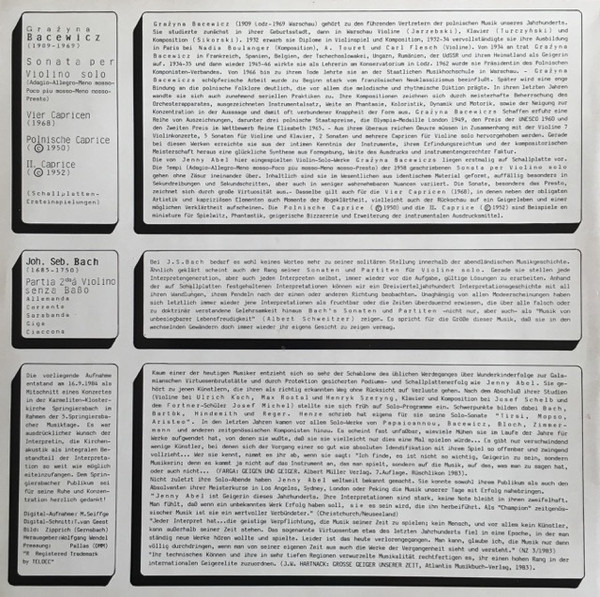 Grażyna
Bacewicz
(1909-1969)
Sonata per
Violino solo
(Adagio-Allegro-Meno mosso-
Poco piu mosso-Meno mosso-
Presto)
Vier Capricen
(1968)
Polnische Caprice
(© 1950)
II. Caprice
(© 1952)
(Schallplatten-
Ersteinspielungen)
Grażyna Bacewicz (1909 Lodz-1969 Warschau) gehört zu den führenden Vertretern der polnischen Musik unseres Jahrhunderts.
Sie studierte zunächst in ihrer Geburtsstadt, dann in Warschau Violine (Jarzebski), Klavier (Turczyński) und
Komposition (Sikorski), 1932 erwarb sie Diplome in Violinspiel und Komposition, 1932-34 vervollständigte sie ihre Ausbildung
in Paris bei Nadia Boulanger (Komposition), A. Touret und Carl Flesch (Violine). Von 1934 an trat Grażyna
Bacewicz in Frankreich, Spanien, Belgien, der Tschechoslowakei, Ungarn, Rumänien, der UdSSR und ihrem Heimatland als Geigerin
auf. 1934-35 und dann wieder 1945-46 wirkte sie als Lehrerin am Konservatorium in Lodz, 1962 wurde sie Präsidentin des Polnischen
Komponisten-Verbandes. Von 1966 bis zu ihrem Tode lehrte sie an der Staatlichen Musikhochschule in Warschau. - Grażyna
Bacewiczs schöpferische Arbeit wurde zu Beginn stark vom französischen Neoklassizismus beeinflußt. Später wird eine enge
Bindung an die polnische Folklore deutlich, die vor allem die melodische und rhythmische Diktion prägte. In ihren letzten Jahren
wandte sie sich auch zunehmend seriellen Praktiken zu. Ihre Kompositionen zeichnen sich durch meisterhafte Beherrschung des
Orchesterapparats, ausgezeichneten Instrumentalsatz, Weite an Phantasie, Koloristik, Dynamik und Motorik, sowie der Neigung zur
Konzentration in der Aussage und damit oft verbundener Knappheit der Form aus. Grażyna Bacewiczs Schaffen erfuhr eine
Reihe von Auszeichnungen, darunter drei polnische Staatspreise, die Olympia-Medaille London 1949, den Preis der UNESCO 1960 und
den Zweiten Preis im Wettbewerb Reine Elisabeth 1965. - Aus ihrem überaus reichen Oeuvre müssen im Zusammenhang mit der Violine 7
Violinkonzerte, 5 Sonaten für Violine und Klavier, 2 Sonaten und mehrere Capricen für Violine solo hervorgehoben werden. Gerade
bei diesen Werken erreichte sie aus der intimen Kenntnis der Instrumente, ihrem Erfindungsreichtum und der kompositorischen
Meisterschaft heraus eine glückliche Synthese aus Formgebung, Weite des Ausdrucks und instrumentengerechter Faktur.
Die von Jenny Abel hier eingespielten Violin-Solo-Werke Grażyna Bacewiczs liegen erstmalig auf Schallplatte vor.
Die Tempi (Adagio-Allegro-Meno mosso-Poco piu mosso-Meno mosso-Presto) der 1958 geschriebenen Sonata per Violino solo
gehen ohne Zäsur ineinander über. Inhaltlich sind sie im Wesentlichen aus identischem Material geformt, auffällig besonders in
Sekundreibungen und Sekundschritten, aber auch in weniger wahrnehmbaren Nuancen variiert. Die Sonata, besonders das Presto,
zeichnet sich durch große Virtuosität aus.- Dasselbe gilt auch für die Vier Capricen (1968), in denen neben der obligaten
Artistik und kapriziösen Elementen auch Momente der Abgeklärtheit, vielleicht auch der Rückschau auf ein Geigerleben und einer
möglichen Verklärtheit aufscheinen. Die Polnische Caprice (©1950) und die II. Caprice (©1952) sind Beispiele en
miniature für Spielwitz, Phantastik, geigerische Bizarrerie und Erweiterung der instrumentalen Ausdrucksmittel.
Joh. Seb. Bach
(1685-1750)
Partia 2da á Violino
senza Baßo
Allemanda
Corrente
Sarabanda
Giga
Ciaccona
Bei J.S.Bach bedarf es wohl keines Wortes mehr zu seiner solitären Stellung innerhalb der abendländischen Musikgeschichte.
Ähnlich geklärt scheint auch der Rang seiner Sonaten und Partiten für Violine solo. Gerade sie stellen jede
Interpretengeneration, aber auch jeden Interpreten selbst, immer wieder vor die Aufgabe, gültige Lösungen zu erarbeiten. Anhand
der auf Schallplatten festgehaltenen Interpretationen können wir ein Dreivierteljahrhundert Interpretationsgeschichte mit all
ihren Wandlungen, ihrem Pendeln nach der einen oder anderen Richtung beobachten. Unabhängig von allen Modeerscheinungen haben
sich letztlich immer wieder jene Interpretationen als fruchtbar oder die Zeiten überdauernd erwiesen, die über alle falsch oder
zu doktrinär verstandene Gelehrsamkeit hinaus Bach's Sonaten und Partiten -nicht nur, aber auch- als "Musik von
unbesiegbarer Lebensfreudigkeit" (Albert Schweitzer) zeigen. Es spricht für die Größe dieser Musik, daß sie in den
wechselnden Gewändern doch immer wieder ihr eigenes Gesicht zu zeigen vermag.
Die vorliegende Aufnahme
entstand am 16.9.1984 als
Mitschnitt eines Konzertes
in der Karmeliten-Kloster-
kirche Springiersbach im
Rahmen der 3.Springiersba-
cher Musiktage. Es war
ausdrücklicher Wunsch der
Interpretin, die Kirchen-
akustik als integralen Be-
standteil der Interpreta-
tion so weit wie möglich
miteinzufangen. Dem Sprin-
giersbacher Publikum sei
für seine Ruhe und Konzen-
tration herzlich gedankt!
Digital-Aufnahme: M.Seiffge
Digital-Schnitt:I.van Geest
Bild: Czaprich (Bernsbach)
Herausgeber:Wolfgang Wendel
Pressung: Pallas (DMM)
"R Registered Trademark
by TELDEC"
Kaum einer der heutigen Musiker entzieht sich so sehr der Schablone des üblichen Werdeganges über Wunderkinderfolge zur Gala-
mianischen Virtuosenbrutstätte und durch Protektion gesicherten Podiums- und Schallplattenerfolg wie Jenny Abel. Sie ge-
hört zu jenen Künstlern, die ihren als richtig erkannten Weg ohne Rücksicht auf Verluste gehen. Nach dem Abschluß ihrer Studien
(Violine bei Ulrich Koch, Max Rostal und Henryk Szeryng, Klavier und Komposition bei Josef Schelb und
dem Fortner-Schüler Josef Michel) stellte sie sich früh auf Solo-Programme ein. Schwerpunkte bilden dabei Bach,
Bartók, Hindemith und Reger. Henze schrieb hat eigens für sie seine Solo-Sonate "Tirsi, Mopso,
Aristeo". In den letzten Jahren kamen vor allem Solo-Werke von Papaioannou, Bacewicz, Bloch, Zimmer-
mann und anderen zeitgenössischen Komponisten hinzu. Es scheint fast unfaßbar, wieviele Mühen sie im Laufe der Jahre für
Werke aufgewendet hat, von denen sie wußte, daß sie sie vielleicht nur dies eine Mal spielen würde... Es gibt nur verschwindend
wenige Künstler, bei denen sich der Vorgang einer so gut wie absoluten Identifikation mit ihrem Spiel so offenbar und zwingend
vollzieht... Wer sie kennt, nimmt es ihr ab, wenn sie sagt: "Ich finde, es ist nicht so wichtig, Geigerin zu sein, sondern
Musikerin; denn es kommt ja nicht auf das Instrument an, das man spielt, sondern auf die Musik, auf das, was man zu sagen hat,
oder auch nicht... (YARGA: GEIGEN UND GEIGER, Albert Müller Verlag, 7.Auflage, Rüschlikon 1983).
Nicht zuletzt ihre Solo-Abende haben Jenny Abel weltweit bekannt gemacht. Sie konnte sowohl ihrem Publikum als auch den
Absolventen ihrer Meisterkurse in Los Angeles, Sydney, London oder Peking die Musik unserer Tage mit Erfolg nahebringen.
"Jenny Abel ist Geigerin dieses Jahrhunderts. Ihre Interpretationen sind stark, keine Note bleibt in ihnen zweifelhaft.
Man fühlt, daß wenn ein unbekanntes Werk Erfolg haben soll, sie es sein wird, die ihn herbeiführt. Als "Champion" zeitgenös-
sischer Musik ist sie ein wertvoller Verbündeter." (Christchurch/Neuseeland)
"Jeder Interpret hat...die geistige Verpflichtung, die Musik seiner Zeit zu spielen; kein Mensch, und vor allem kein Künstler,
kann außerhalb seiner Zeit stehen. Das sogenannte Virtuosentum etwa des letzten Jahrhunderts fiel in eine Epoche, in der man
ständig neue Werke hören wollte und spielte. Leider ist das heute verlorengegangen. Man kann, glaube ich, die Musik nur dann
völlig durchdringen, wenn man von seiner eigenen Zeit aus auch die Werke der Vergangenheit sieht und versteht." (NZ 3/1983)
"Ihr technisches Können und ihre in sehr tiefen Regionen verwurzelte Musikalität rechtfertigen es, ihr einen hohen Rang in der
internationalen Geigerelite zuzuordnen. (J.W. HARTNACK: GROSSE GEIGER UNSERER ZEIT, Atlantis Musikbuch-Verlag, 1983).